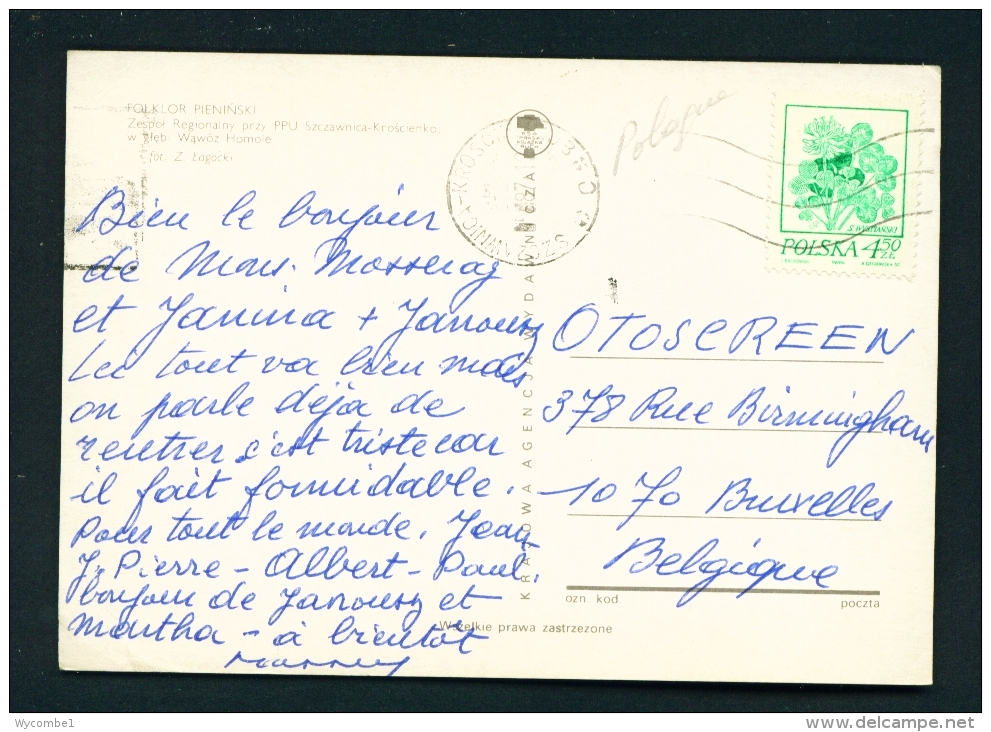 FOLKLOR PIENIŃSKI
Zespół Regionalny przy PPU Szczawnica-Krościenko,
w głębi Wąwóz Homole
fot. Z. Łagocki
Pologne
S. WYSPIAŃSKI
POLSKA 4 50 ZŁ
Bien le bonjour
de Mons. Mosseray
et Janina + Janousz
Ici tout va bien mais
on parle déjà de
rentrer c'est triste car
il fait formidable.
Pour tout le monde. Jean
J. Pierre - Albert - Paul.
bonjour de Janousz et
Martha - à bientôt
OTOSCREEN
378 Rue Birmingham
1070 Bruxelles
Belgique
KRAJOWA AGENCJA WYDAWNICZA
ozn. kod.
poczta
Wszelkie prawa zastrzeżone
Wycombe1
www.delcampe.net